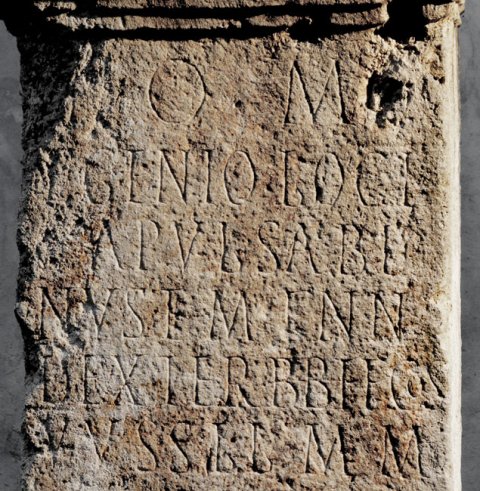 O M
GENIO LOCI
APVL SABI
NVS E M ENN
DEXTER BB FF COS
VV SS LL M M